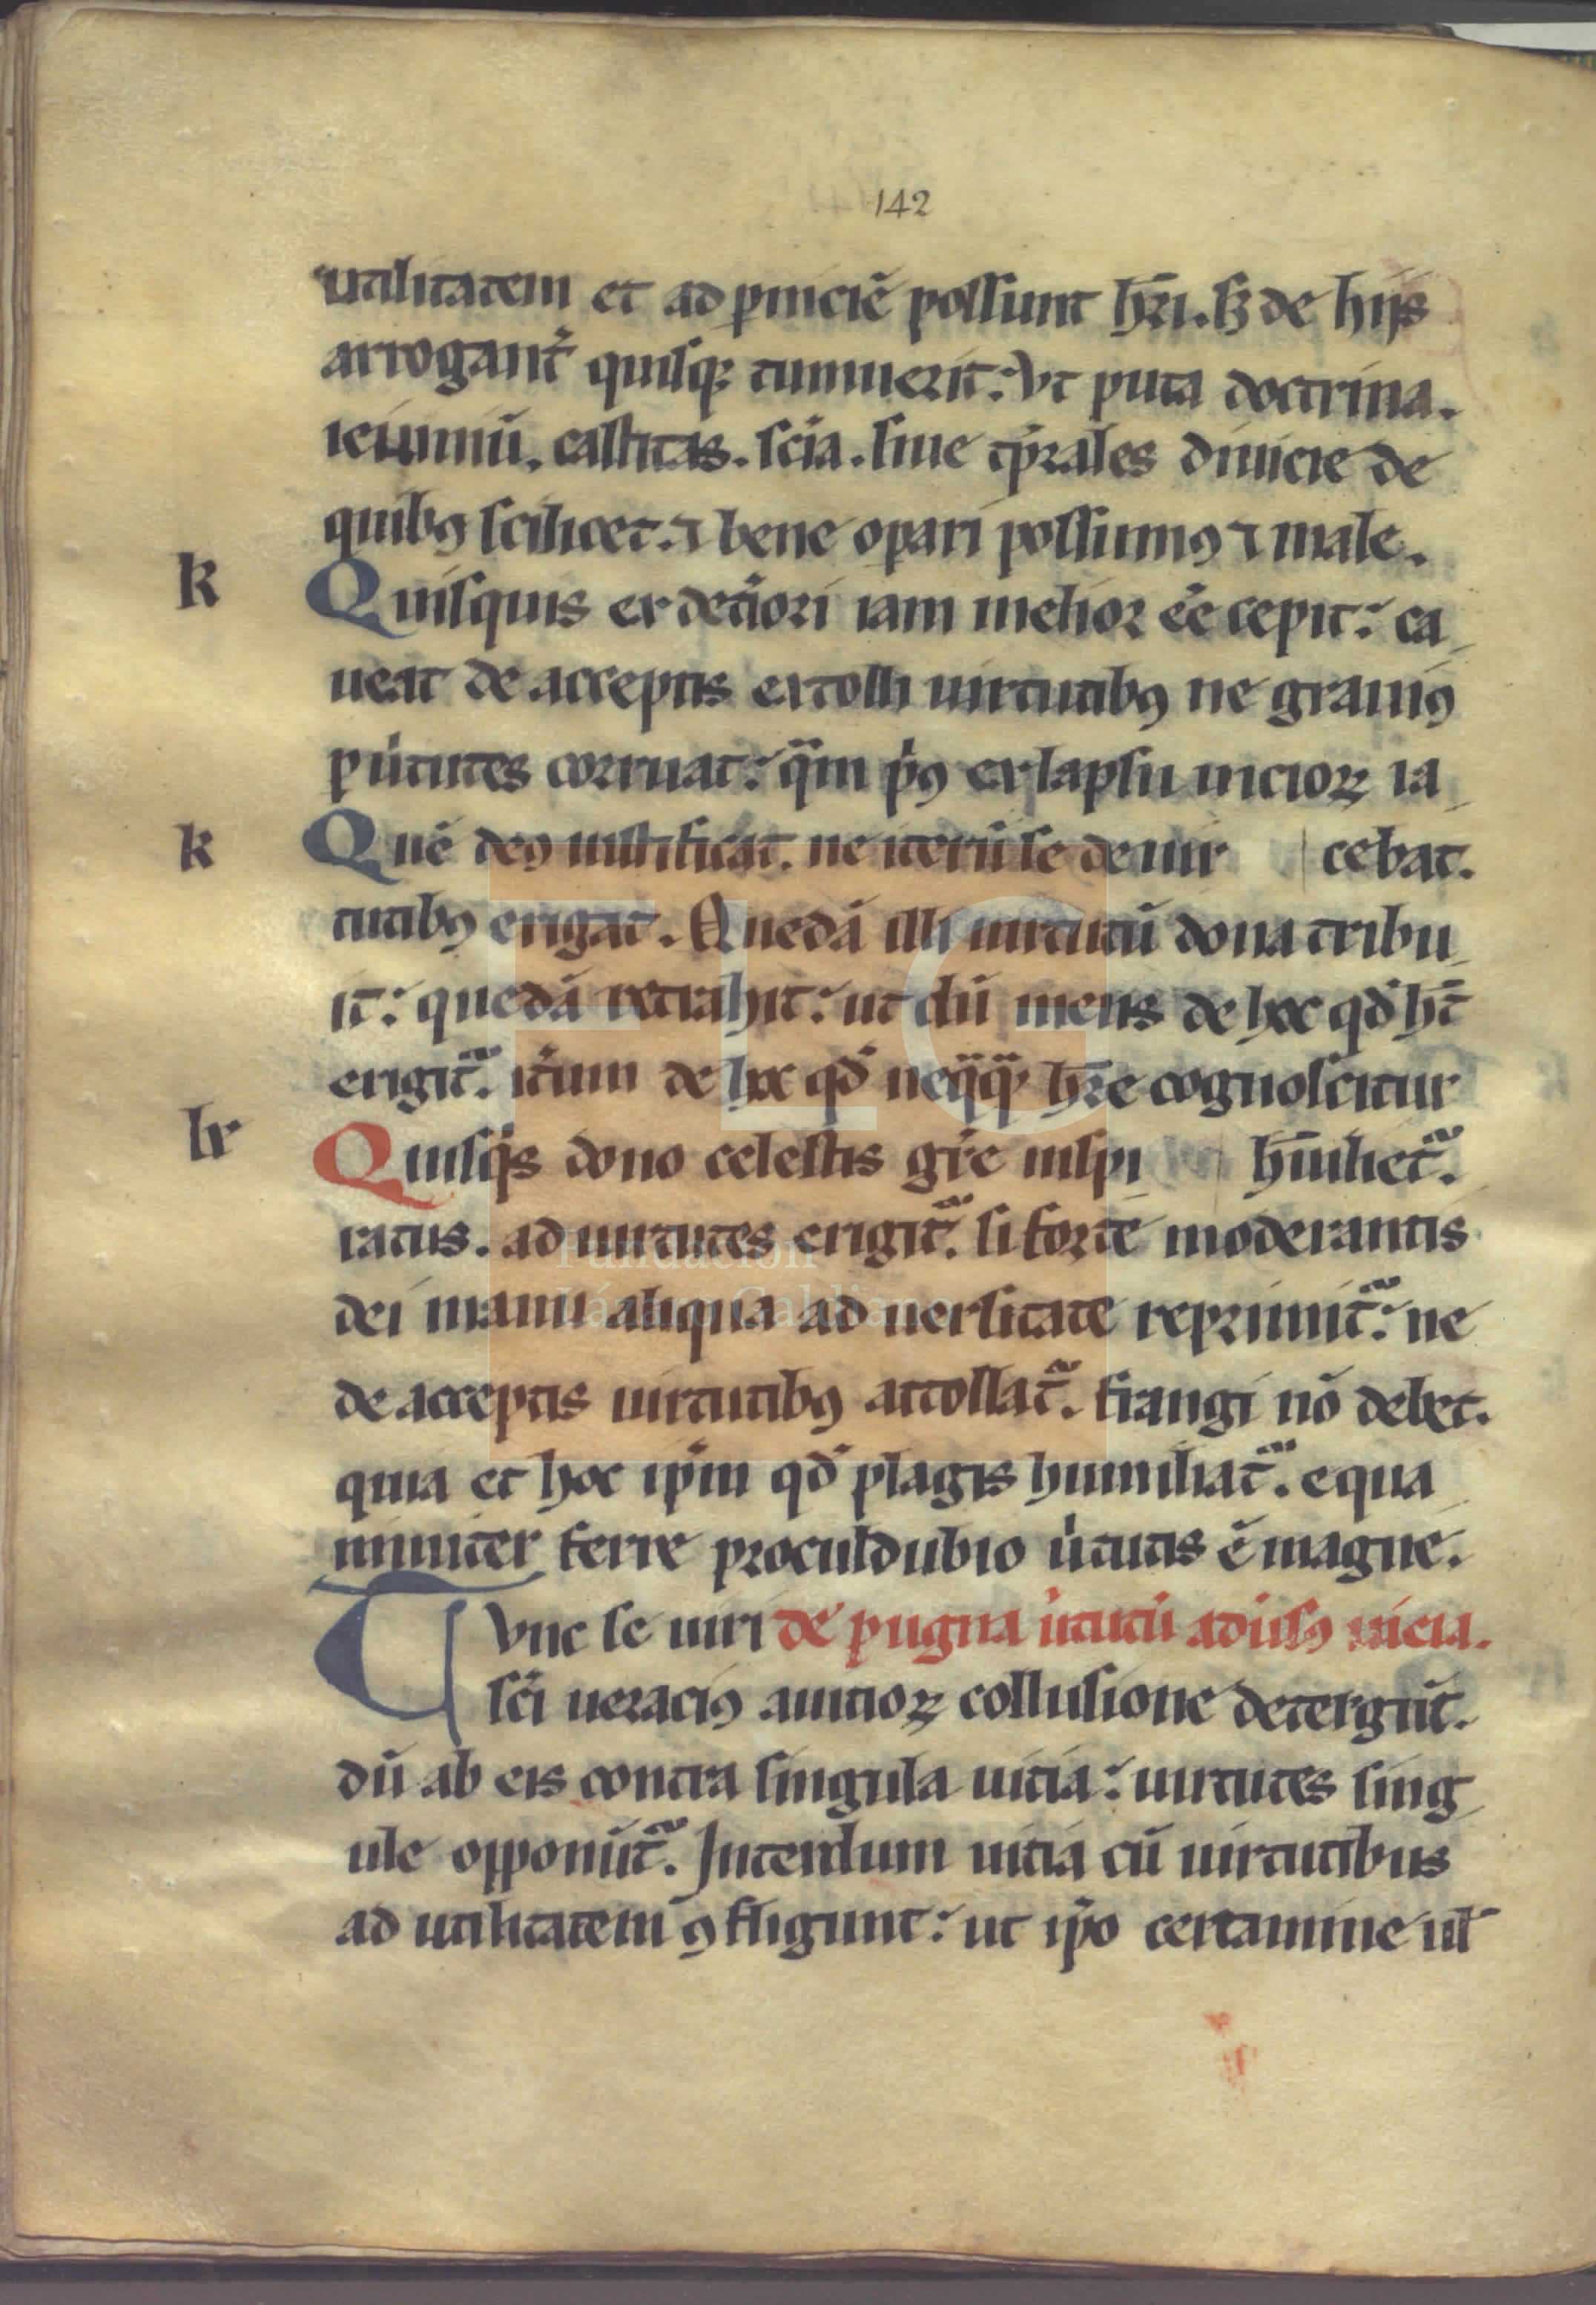 142
utilitatem et ad ꝑniciē possunt hr̄i. sꝫ de hijs
arrogant͛ quisqꝫ tumuerit: Vt puta doctrina.
ieiuniū. castitas. scīa. siue tꝑrales diuicie de
quibꝯ scilicet. ⁊ bene oꝑari possumꝯ ⁊ male.
k
Quisquis ex det͛iori iam melior eē cepit: ca
ueat de acceptis extolli uirtutibꝯ ne grauiꝯ
ꝑ uͥtutes corruat: qͣm pͥꝯ ex lapsu uicioꝝ ia
cebat.
k
Quē deꝯ iustificat. ne iterū se de uir
tutibꝯ erigat. Quedā illi uirtutū dona tribu
it: quedā retrahit: ut dū mens de hoc qd̄ ht̄
erigit͛. it͛um de hoc qd̄ neqͣqͣꝫ hr̄e cognoscitur
hūiliet͛.
k
Quisqͥs dono celestis gr̄e inspi
ratus. ad uirtutes erigit͛. si forte moderantis
dei manu aliqua ad uersitate reprimit͛: ne
de acceptis uirtutibꝯ attollat͛. frangi nō debet.
quia et hoc ip̄m qd̄ plagis humiliat͛. equa
nimiter ferre proculdubio uͥtutis ē magne.
de pugna uͥtutū aduͥsꝯ uicia.
TVnc se uiri
sc̄i ueraciꝯ a uitioꝝ collusione detergūt.
dū ab eis contra singula uitia: uirtutes sing
ule opponūt͛. Interdum uitia cū uirtutibus
ad utilitatem ꝯfligunt: ut ip̄o certamine ul̄
FLG
Fundación
Lázaro Galdiano